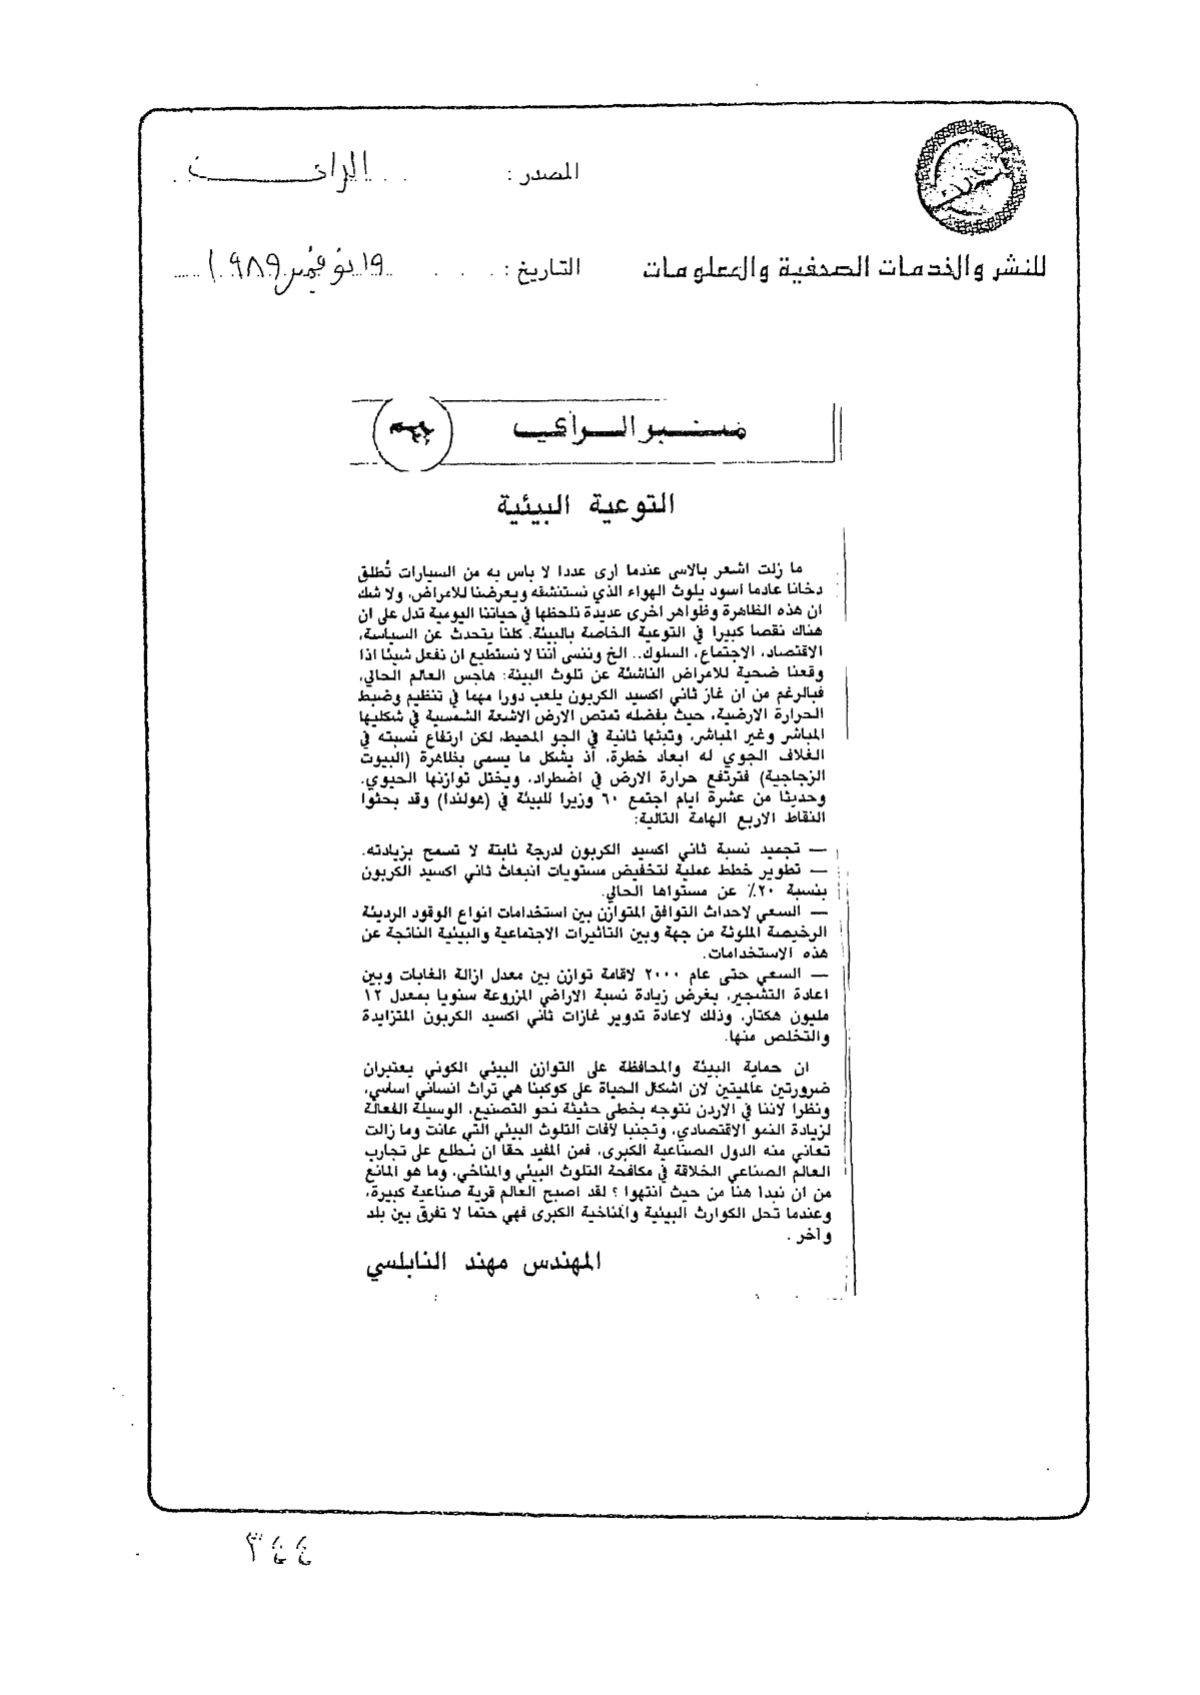 المصدر : الرأي
للنشر والخدمات الصحفية والمعلومات
التاريخ : ١٩ نوفمبر ١٩٨٩
منبر الرأي
التوعية البيئية
ما زلت اشعر بالاسى عندما أرى عددا لا باس به من السيارات تُطلق
دخانا عادما اسود يلوث الهواء الذي نستنشقه ويعرضنا للامراض، ولا شك
ان هذه الظاهرة وظواهر اخرى عديدة نلحظها في حياتنا اليومية تدل على ان
هناك نقصا كبيرا في التوعية الخاصة بالبيئة. كلنا يتحدث عن السياسة،
الاقتصاد، الاجتماع، السلوك.. الخ وننسى أننا لا نستطيع ان نفعل شيئا اذا
وقعنا ضحية للامراض الناشئة عن تلوث البيئة: هاجس العالم الحالي،
فبالرغم من ان غاز ثاني اكسيد الكربون يلعب دورا مهما في تنظيم وضبط
الحرارة الارضية، حيث بفضله تمتص الارض الاشعة الشمسية في شكليها
المباشر وغير المباشر، وتبثها ثانية في الجو المحيط، لكن ارتفاع نسبته في
الغلاف الجوي له ابعاد خطرة، أذ يشكل ما يسمى بظاهرة (البيوت
الزجاجية) فترتفع حرارة الارض في اضطراد، ويختل توازنها الحيوي.
وحديثا من عشرة ايام اجتمع ٦٠ وزيرا للبيئة في (هولندا) وقد بحثوا
النقاط الاربع الهامة التالية:
— تجميد نسبة ثاني اكسيد الكربون لدرجة ثابتة لا تسمح بزيادته.
— تطوير خطط عملية لتخفيض مستويات انبعاث ثاني اكسيد الكربون
بنسبة ٢٠٪ عن مستواها الحالي.
— السعي لاحداث التوافق المتوازن بين استخدامات انواع الوقود الرديئة
الرخيصة الملوثة من جهة وبين التاثيرات الاجتماعية والبيئية الناتجة عن
هذه الاستخدامات.
— السعي حتى عام ٢٠٠٠ لاقامة توازن بين معدل ازالة الغابات وبين
اعادة التشجير، بغرض زيادة نسبة الاراضي المزروعة سنويا بمعدل ١٢
مليون هكتار، وذلك لاعادة تدوير غازات ثاني اكسيد الكربون المتزايدة
والتخلص منها.
ان حماية البيئة والمحافظة على التوازن البيئي الكوني يعتبران
ضرورتين عالميتين لان اشكال الحياة على كوكبنا هي تراث انساني اساسي،
ونظرا لاننا في الاردن نتوجه بخطى حثيثة نحو التصنيع، الوسيلة الفعالة
لزيادة النمو الاقتصادي، وتجنبا لافات التلوث البيئي التي عانت وما زالت
تعاني منه الدول الصناعية الكبرى، فمن المفيد حقا ان نطلع على تجارب
العالم الصناعي الخلاقة في مكافحة التلوث البيئي والمناخي، وما هو المانع
من ان نبدا هنا من حيث انتهوا ؟ لقد اصبح العالم قرية صناعية كبيرة،
وعندما تحل الكوارث البيئية والمناخية الكبرى فهي حتما لا تفرق بين بلد
وآخر .
المهندس مهند النابلسي
٣٤٤